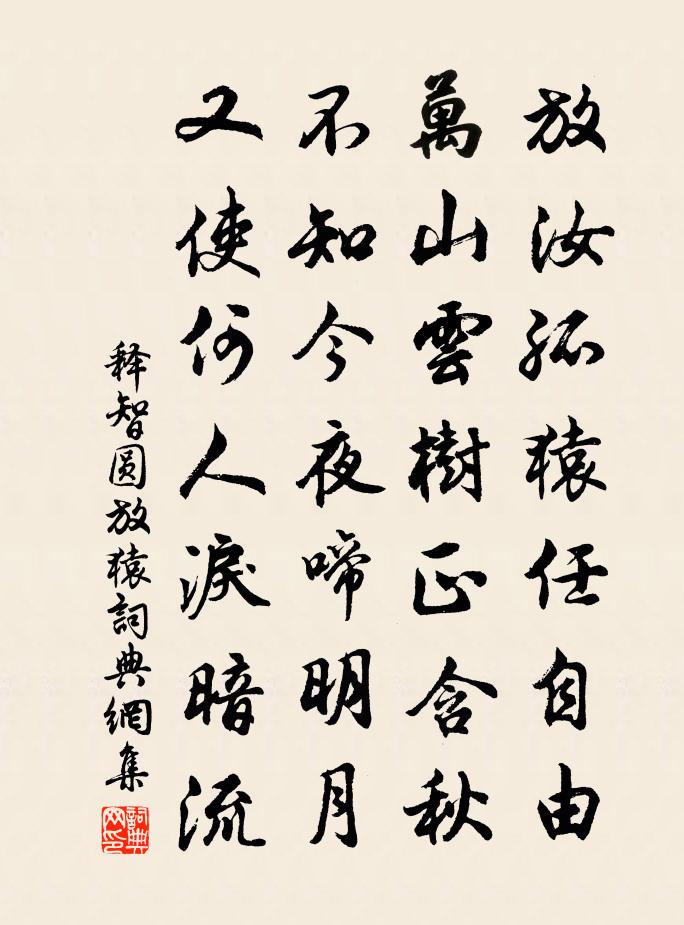 放汝孤猿任自由
萬山雲樹正含秋
不知今夜啼明月
又使何人淚暗流
释智圆放猿詞典網集
詞典网印